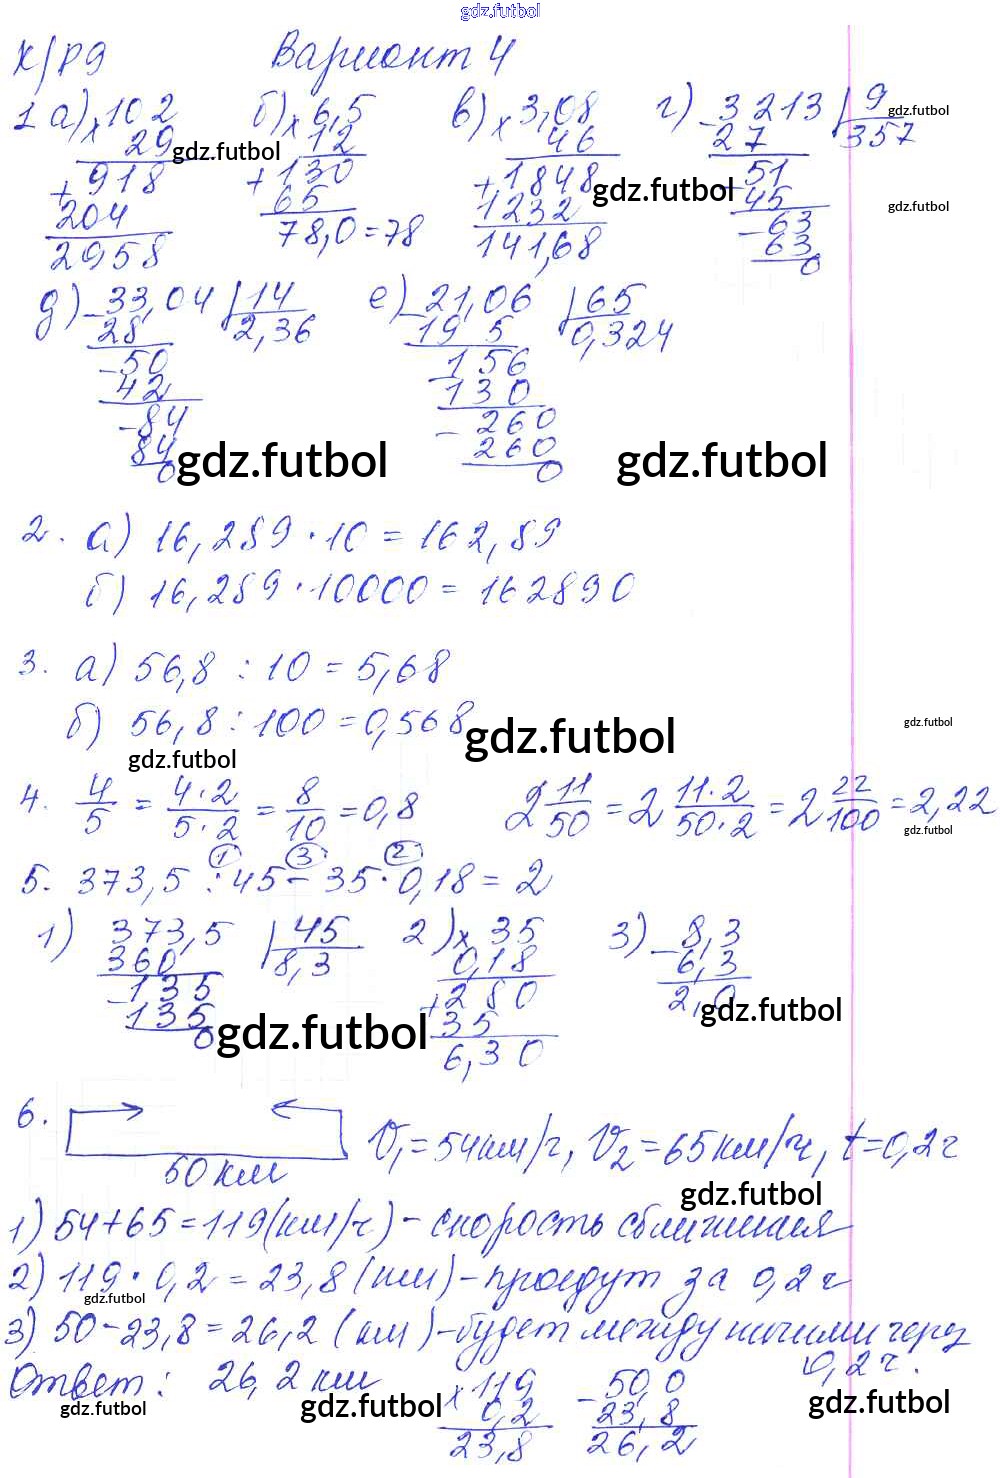 gdz.futbol
К/Р9 Вариант 4
1 а) × 10 2 б) × 6,5 в) × 3,08 г) - 3 213 | 9 gdz.futbol
29 12 46 27 357
gdz.futbol
+ 918 + 130 + 1848 - 51
gdz.futbol
204 65 1232 45 gdz.futbol
29,58 78,0 = 78 141,68 - 63
63
0
д) - 33,04 | 14 е) - 21,06 | 65
28 2,36 19 5 0,324
- 50 - 156
42 130
- 84 - 260
84 gdz.futbol 260 gdz.futbol
0 0
2. а) 16,289 · 10 = 162,89
б) 16,289 · 10000 = 162890
3. а) 56,8 : 10 = 5,68
б) 56,8 : 100 = 0,568 gdz.futbol gdz.futbol
gdz.futbol
4. 4/5 = 4·2/5·2 = 8/10 = 0,8 2 11/50 = 2 11·2/50·2 = 2 22/100 = 2,22
gdz.futbol
1 3 2
5. 373,5 : 45 - 35 · 0,18 = 2
1) 373,5 | 45 2) × 35 3) - 8,3
360 8,3 0,18 6,3
- 135 + 280 2,0 gdz.futbol
135 35
0 gdz.futbol 6,30
6.
50 км V₁ = 54 км/ч, V₂ = 65 км/ч, t = 0,2 ч
gdz.futbol
1) 54 + 65 = 119 (км/ч) - скорость сближения
2) 119 · 0,2 = 23,8 (км) - проедут за 0,2 ч
gdz.futbol
3) 50 - 23,8 = 26,2 (км) - будет между ними через
0,2 ч.
Ответ: 26,2 км × 119 - 50,0
gdz.futbol gdz.futbol 0,2 23,8 gdz.futbol
23,8 26,2